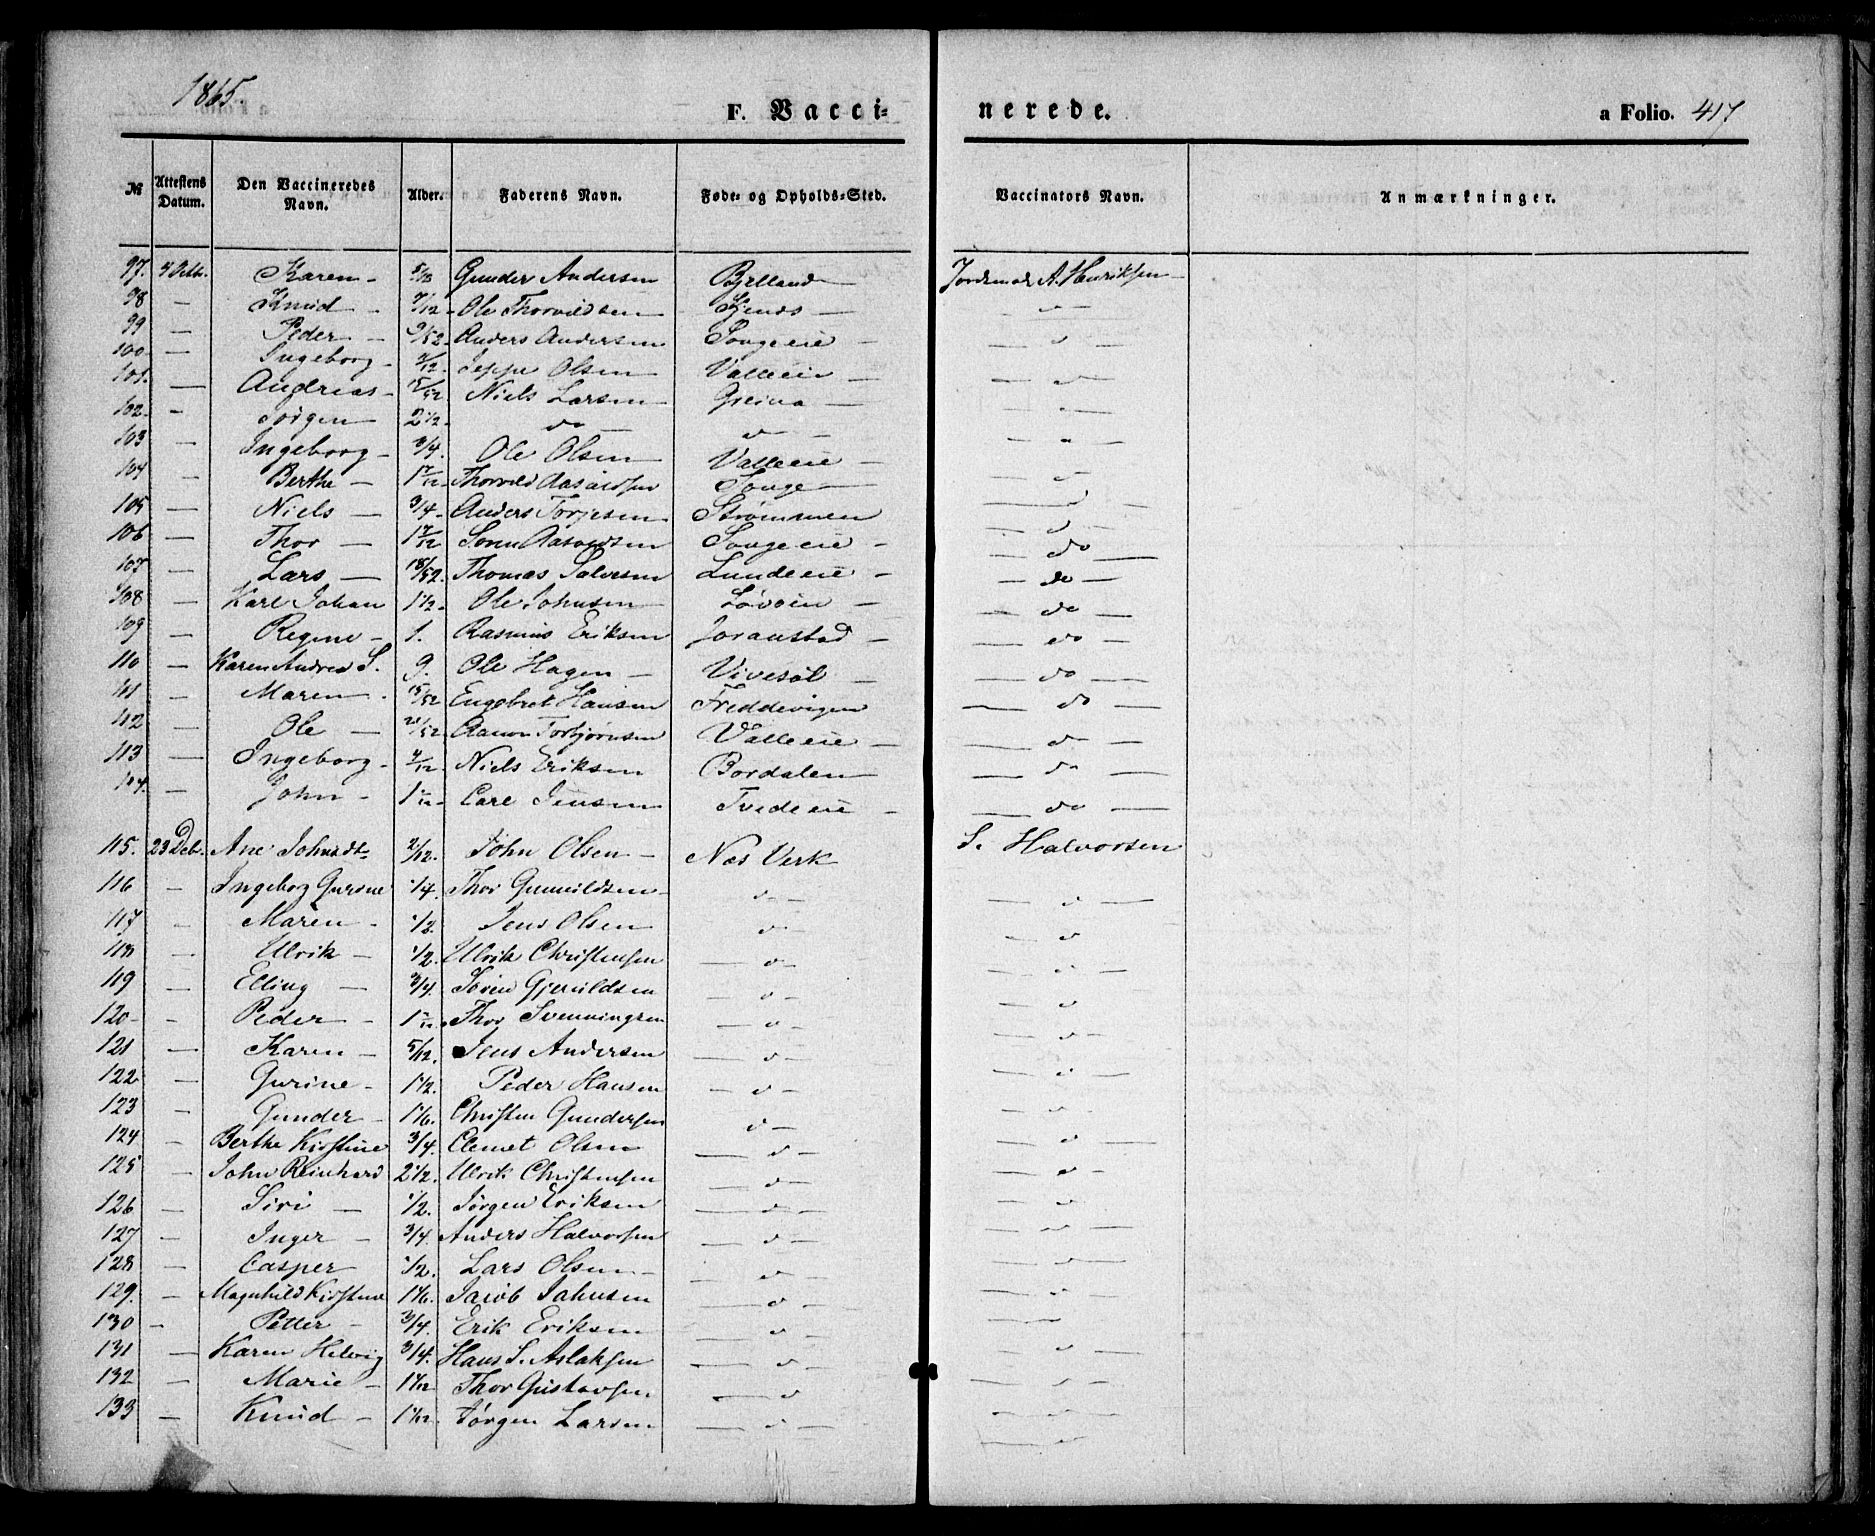 1865.
F. Vacci-
nerede.
a Folio. 417
№ Attestens Datum. Den Vaccineredes Navn. Alder. Faderens Navn. Føde- og Opholds-Sted. Vaccinators Navn. Anmærkninger.
97. Karen - Gunder Andersen Bjelland - Jordemor A. Henriksen -
98 — Knud - 7/12 - Ole Thorvildsen —
99 — Peder — 9/52 - Anders Andersen Songeeie —
100 — Ingeborg - Jeppe Olsen Valleeie —
101. — Andreas - 15/52 Niels Larsen — Greina —
102. - Jørgen — 2 1/2 do —
103 — Ingeborg - 3/4. Ole Olsen Valleeie —
104 — Berthe - Thorvild Aasvildsen Songe —
105 — Niels — 3/4 - Anders Torjesen Strømmen
106 — Thor — Søren Aasvildsen Songeeie -
do —
107 — Lars — 18/52. Thomas Salvesen Lundeeie - — do —
108 — Karl Johan 1 1/2. Ole Johnsen — do —
109 — Regine - 1. Rasmus Eriksen Joranstad — — do —
110 — Karen Andrea S. 9. Ole Hagen — Vivesøl — — do —
111 — Maren. 15/52 Engebret Hansen Freddevigen — do —
112 — Ole — Aanon Torbjørnsen Valleeie —
113 — Ingeborg - Niels Eriksen Bordalen —
114. — John - Carl Jensen Tvedeeie — — do —
115. 23 Deb. Ane Johnsdt. 2/12. John Olsen — Næs Verk S. Halvorsen
116 — Ingeborg Gurine 1/4 Thor Gunuldsen —
117 Maren - 1/2. Jens Olsen
118 — Ulrik - 1/2. Ulrik Christensen
119 Elling — 3/4. Søren Gjeruldsen
120 - - Peder - Thor Svenningsen
121 — Karen - 5/12. Jens Andersen
122 — Gurine - 1 1/2. Peder Hansen
123 — Gunder - 1 1/6. Christen Gundersen
124 - Berthe Kirstine 3/4. Clemet Olsen
125 - John Reinhard 2 1/2. Ulrik Christensen
126 — Siri — 1/2. Jørgen Eriksen
127 — Inger - 3/4. Anders Halvorsen
128 — Casper 1/2. Lars Olsen —
129. - Magnhild Kirstine 1 1/6. Jacob Jahnsen
130 - Petter - 3/4. Erik Eriksen
131 — Karen Helvig 3/4. Hans S. Aslaksen
132 — Marie - 1 1/12 Thor Gustavsen
133 — Knud - 1 1/12. Jørgen Larsen